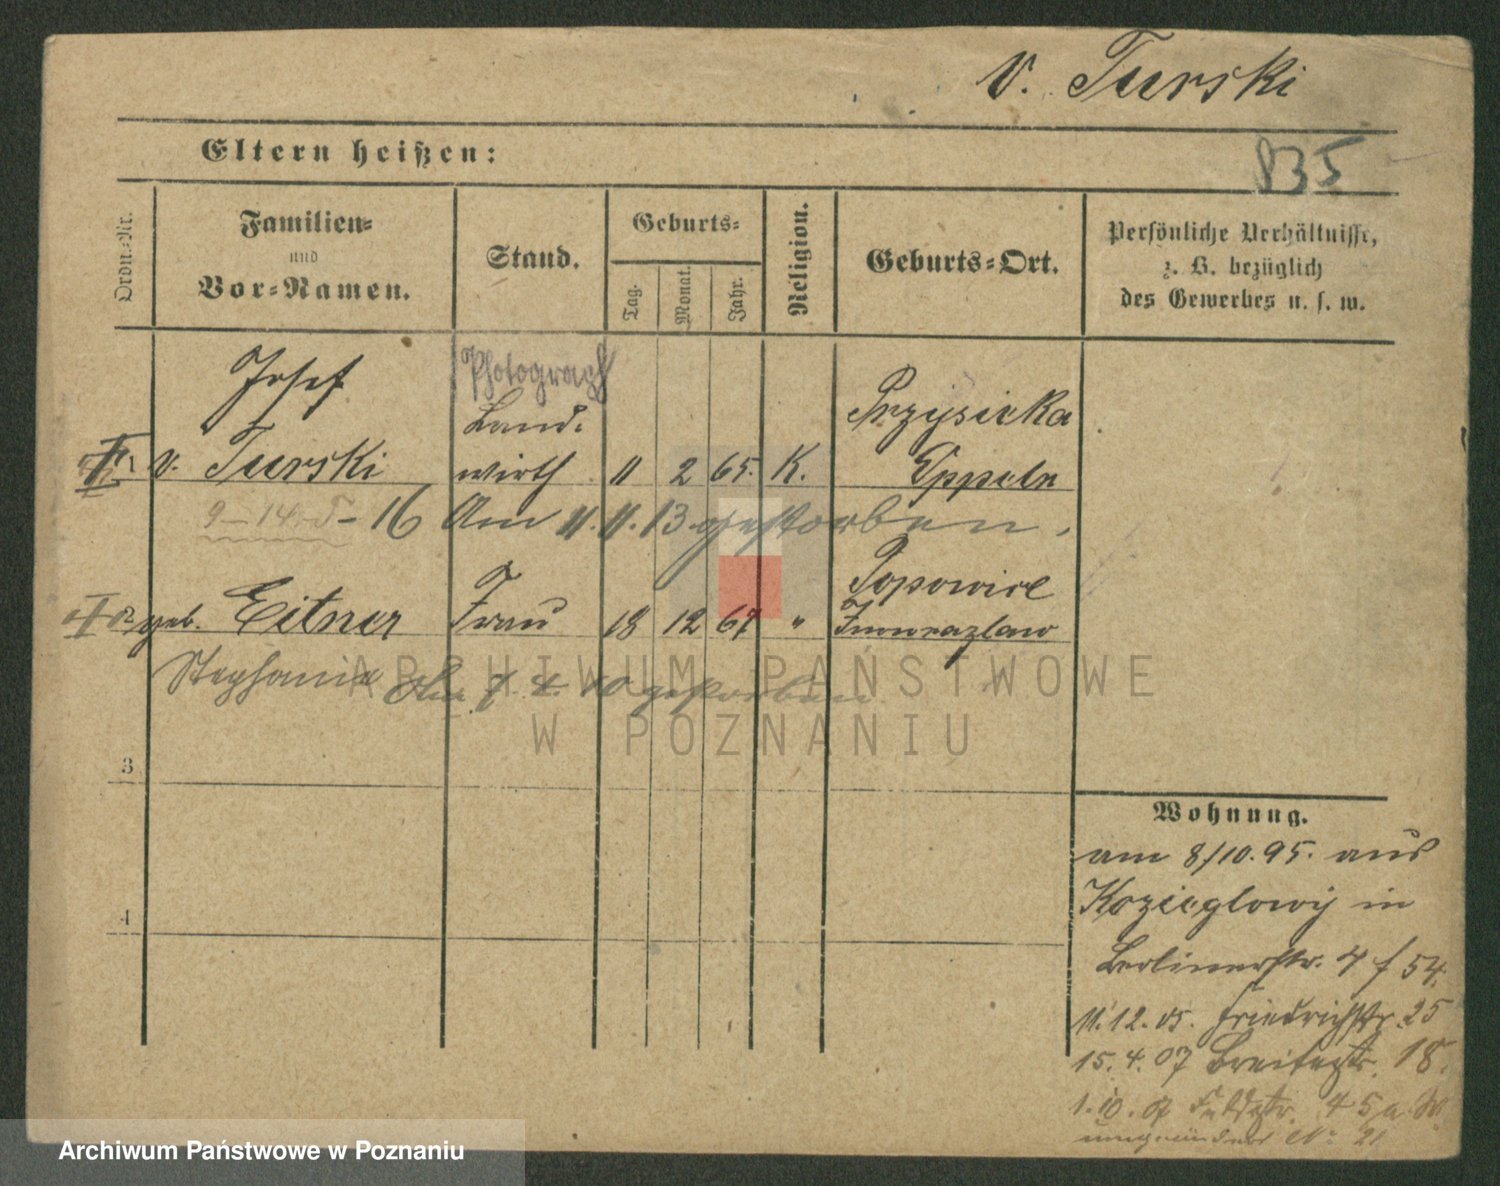 v. Turski
835
Eltern heißen:
Ordn.-Nr.
Familien-
und
Vor-Namen.
Stand.
Geburts-
Tag.
Monat.
Jahr.
Religion.
Geburts-Ort.
Persönliche Verhältnisse,
z. B. bezüglich
des Gewerbes u. s. w.
Josef Photograph
Land- Przysieka
1 v. Turski wirth 11 2 65. K.
9-14 16 Am 11. 11. 13. gestorben.
Popowice
2 geb. Eitner Frau 18 12 67 " Inowrazlaw
Stephanie Am 7. 4. 10 gestorben
3
4
Wohnung.
am 8/10. 95. aus
Kozieglowy in
Berlinerstr. 4 f 54.
11. 12. 05. Friedrichstr. 25
15. 4. 07 Breitestr. 18.
1. 10. 07 Feldstr. 45a W.
No 21
ARCHIWUM PAŃSTWOWE
W POZNANIU
Archiwum Państwowe w Poznaniu